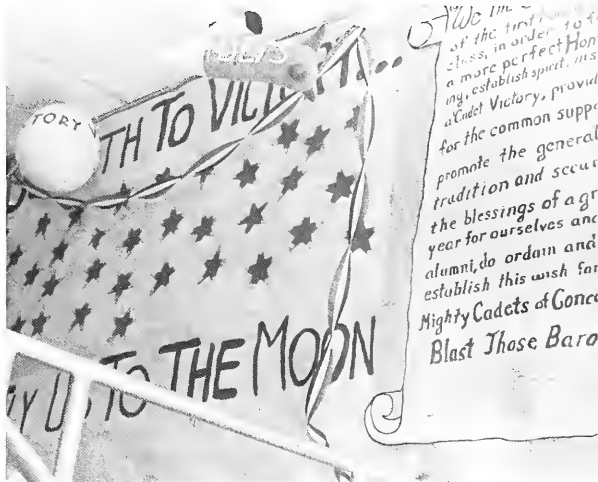 TORY
TH TO VICTORY...
Y US TO THE MOON
We the
of the first
class, in order to f
a more perfect Hom
ing, establish spirit, ins
a Cadet Victory, provid
for the common suppo
promote the general
tradition and secur
the blessings of a gr
year for ourselves and
alumni, do ordain and
establish this wish for
Mighty Cadets of Conco
Blast Those Baro